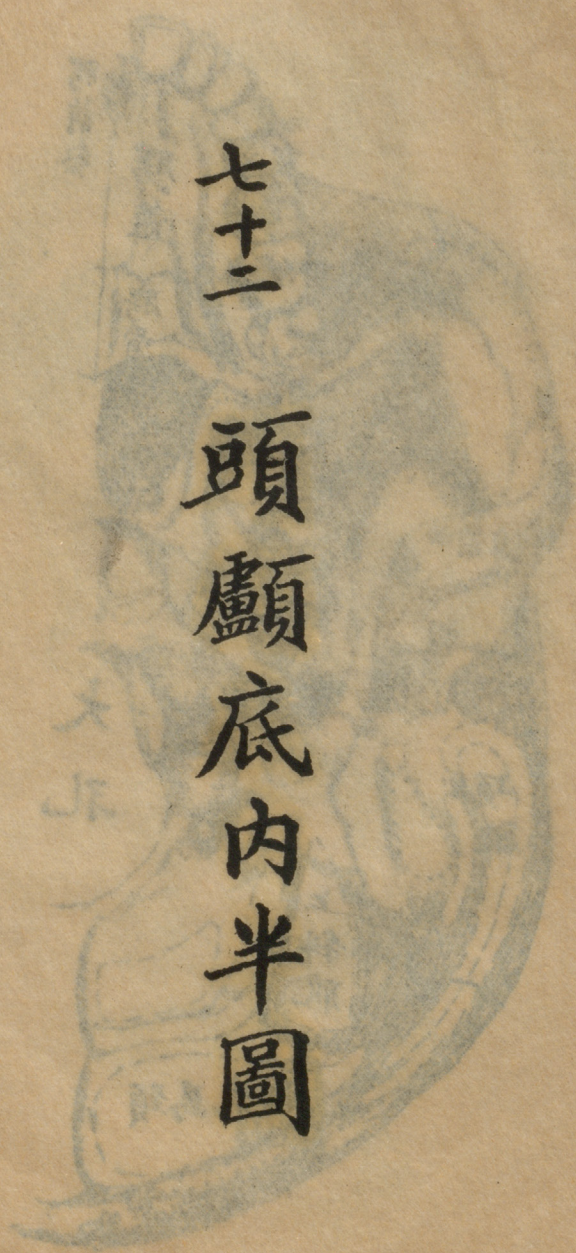 七十二 頭顱底内半圖